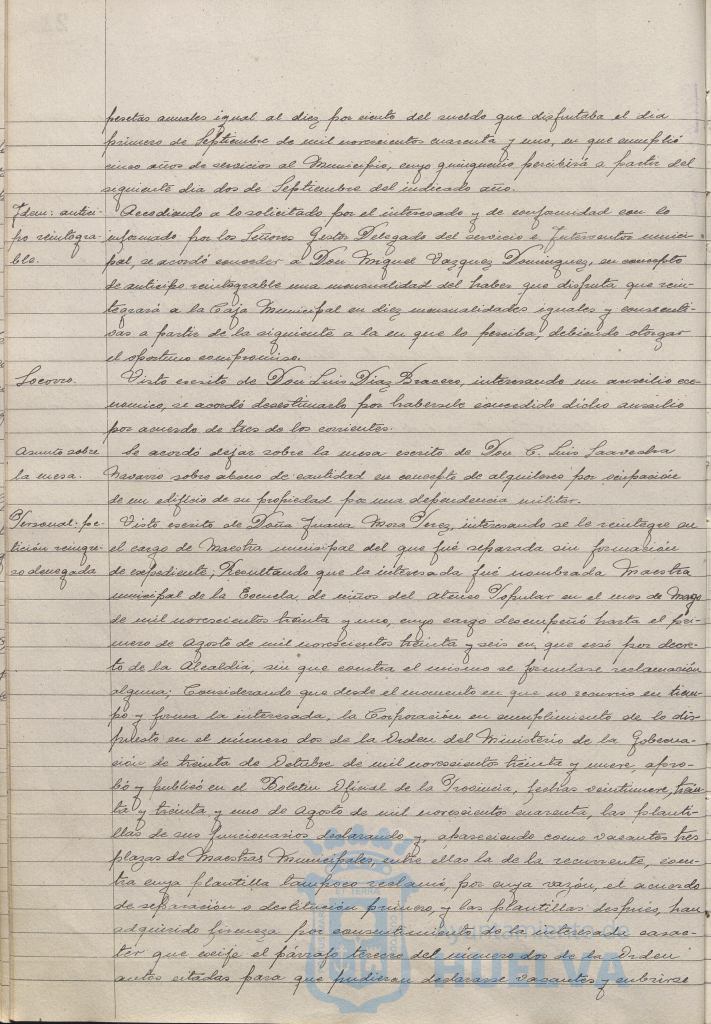 pesetas anuales igual al diez por ciento del sueldo que disfrutaba el dia
primero de Septiembre de mil novecientos cuarenta y uno, en que cumplió
cinco años de servicios al Municipio, cuyo quinquenio percibirá a partir del
siguiente dia dos de Septiembre del indicado año.
Idem: antici-
po reintegra-
ble.
Accediendo a lo solicitado por el interesado y de conformidad con lo
informado por los Señores Gestor Delegado del servicio e Interventor munici-
pal, se acordó conceder a Don Miguel Vazquez Dominguez, en concepto
de anticipo reintegrable una mensualidad del haber que disfruta que rein-
tegrará a la Caja Municipal en diez mensualidades iguales y consecuti-
vas a partir de la siguiente a la en que lo perciba, debiendo otorgar
el oportuno compromiso.
Socorro.
Visto escrito de Don Luis Diaz Bracero, interesando un auxilio eco-
nomico, se acordó desestimarlo por habersele concedido dicho auxilio
por acuerdo de tres de los corrientes.
Asunto sobre
la mesa.
Se acordó dejar sobre la mesa escrito de Don C. Luis Saavedra
Navarro sobre abono de cantidad en concepto de alquileres por ocupación
de un edificio de su propiedad por una dependencia militar.
Personal: pe-
tición reingre-
so denegada
Visto escrito de Doña Juana Mora Perez, interesando se le reintegre en
el cargo de Maestra municipal del que fué separada sin formación
de expediente; Resultando que la interesada fué nombrada Maestra
municipal de la Escuela de niños del Ateneo Popular en el mes de Mayo
de mil novecientos treinta y uno, cuyo cargo desempeñó hasta el pri-
mero de Agosto de mil novecientos treinta y seis en que cesó por decre-
to de la Alcaldía, sin que contra el mismo se formulase reclamación
alguna; Considerando que desde el momento en que no recurrió en tiem-
po y forma la interesada, la Corporación en cumplimiento de lo dis-
puesto en el número dos de la Orden del Ministerio de la Goberna-
ción de treinta de Octubre de mil novecientos treinta y nueve, apro-
bó y publicó en el Boletin Oficial de la Provincia, fechas veintinueve, trein-
ta y treinta y uno de Agosto de mil novecientos cuarenta, las planti-
llas de sus funcionarios declarando y, apareciendo como vacantes tres
plazas de Maestras Municipales, entre ellas la de la recurrente, con-
tra cuya plantilla tampoco reclamó, por cuya razón, el acuerdo
de separación o destitución primero, y las plantillas despues, han
adquirido firmeza por consentimiento de la interesada, carac-
ter que exije el párrafo tercero del número dos de la Orden
antes citadas para que pudieran declararse vacantes y cubrirse
Ayuntamiento de
HUELVA